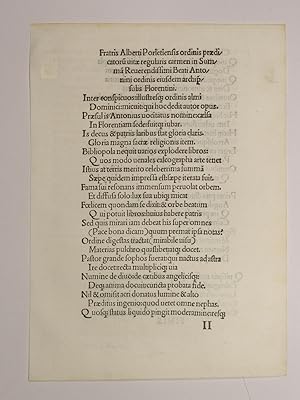 Fratris Alberti Porlesiensis ordinis prædi
catorũ uitæ regularis carmen in Sum
mã Reuerendissimi Beati Anto
nini ordinis eiusdem archip̃
sulis Florentini.
Inter conspicuos illustresq; ordinis almi
Dominici
In Florentiam sede
Is decus & patriis laribus stat gloria claris.
Gloria magna sacræ religionis item.
Bibliopola nequit uarios explodere libros:
Quos modo uenales calcographa arte tenet
Istius at terris merito celeberrima summa
Sæpe quidem impressa est sæpe iterata fuit.
Fama sui resonans immensum peruolat orbem.
Et diffusa solo laxſ sua ubiq; micat
Fœlicem quondam se dixit & orbe beatum
Qui potuit libros huius habere patris
Sed quis mirari iam debeat his super omnes
(Pace bona dicam) quum premat ipsa notas?
Ordine digestas tractat (mirabile uisu)
Materias pulchro quoslibet atq; docet.
Pastor grande sophos fuerat qui nuctus ad astra
Ire docet recta multiplici q; uia
Numine de diuo de cœtibus angelicisq;
Deq; anima docui cuncta probata fide.
Nil & omisit aeri donatus lumine & alto
Præditus ingenio: quod uetet omne nephas.
Quosq; status liquido pingit moderamine resq;
II